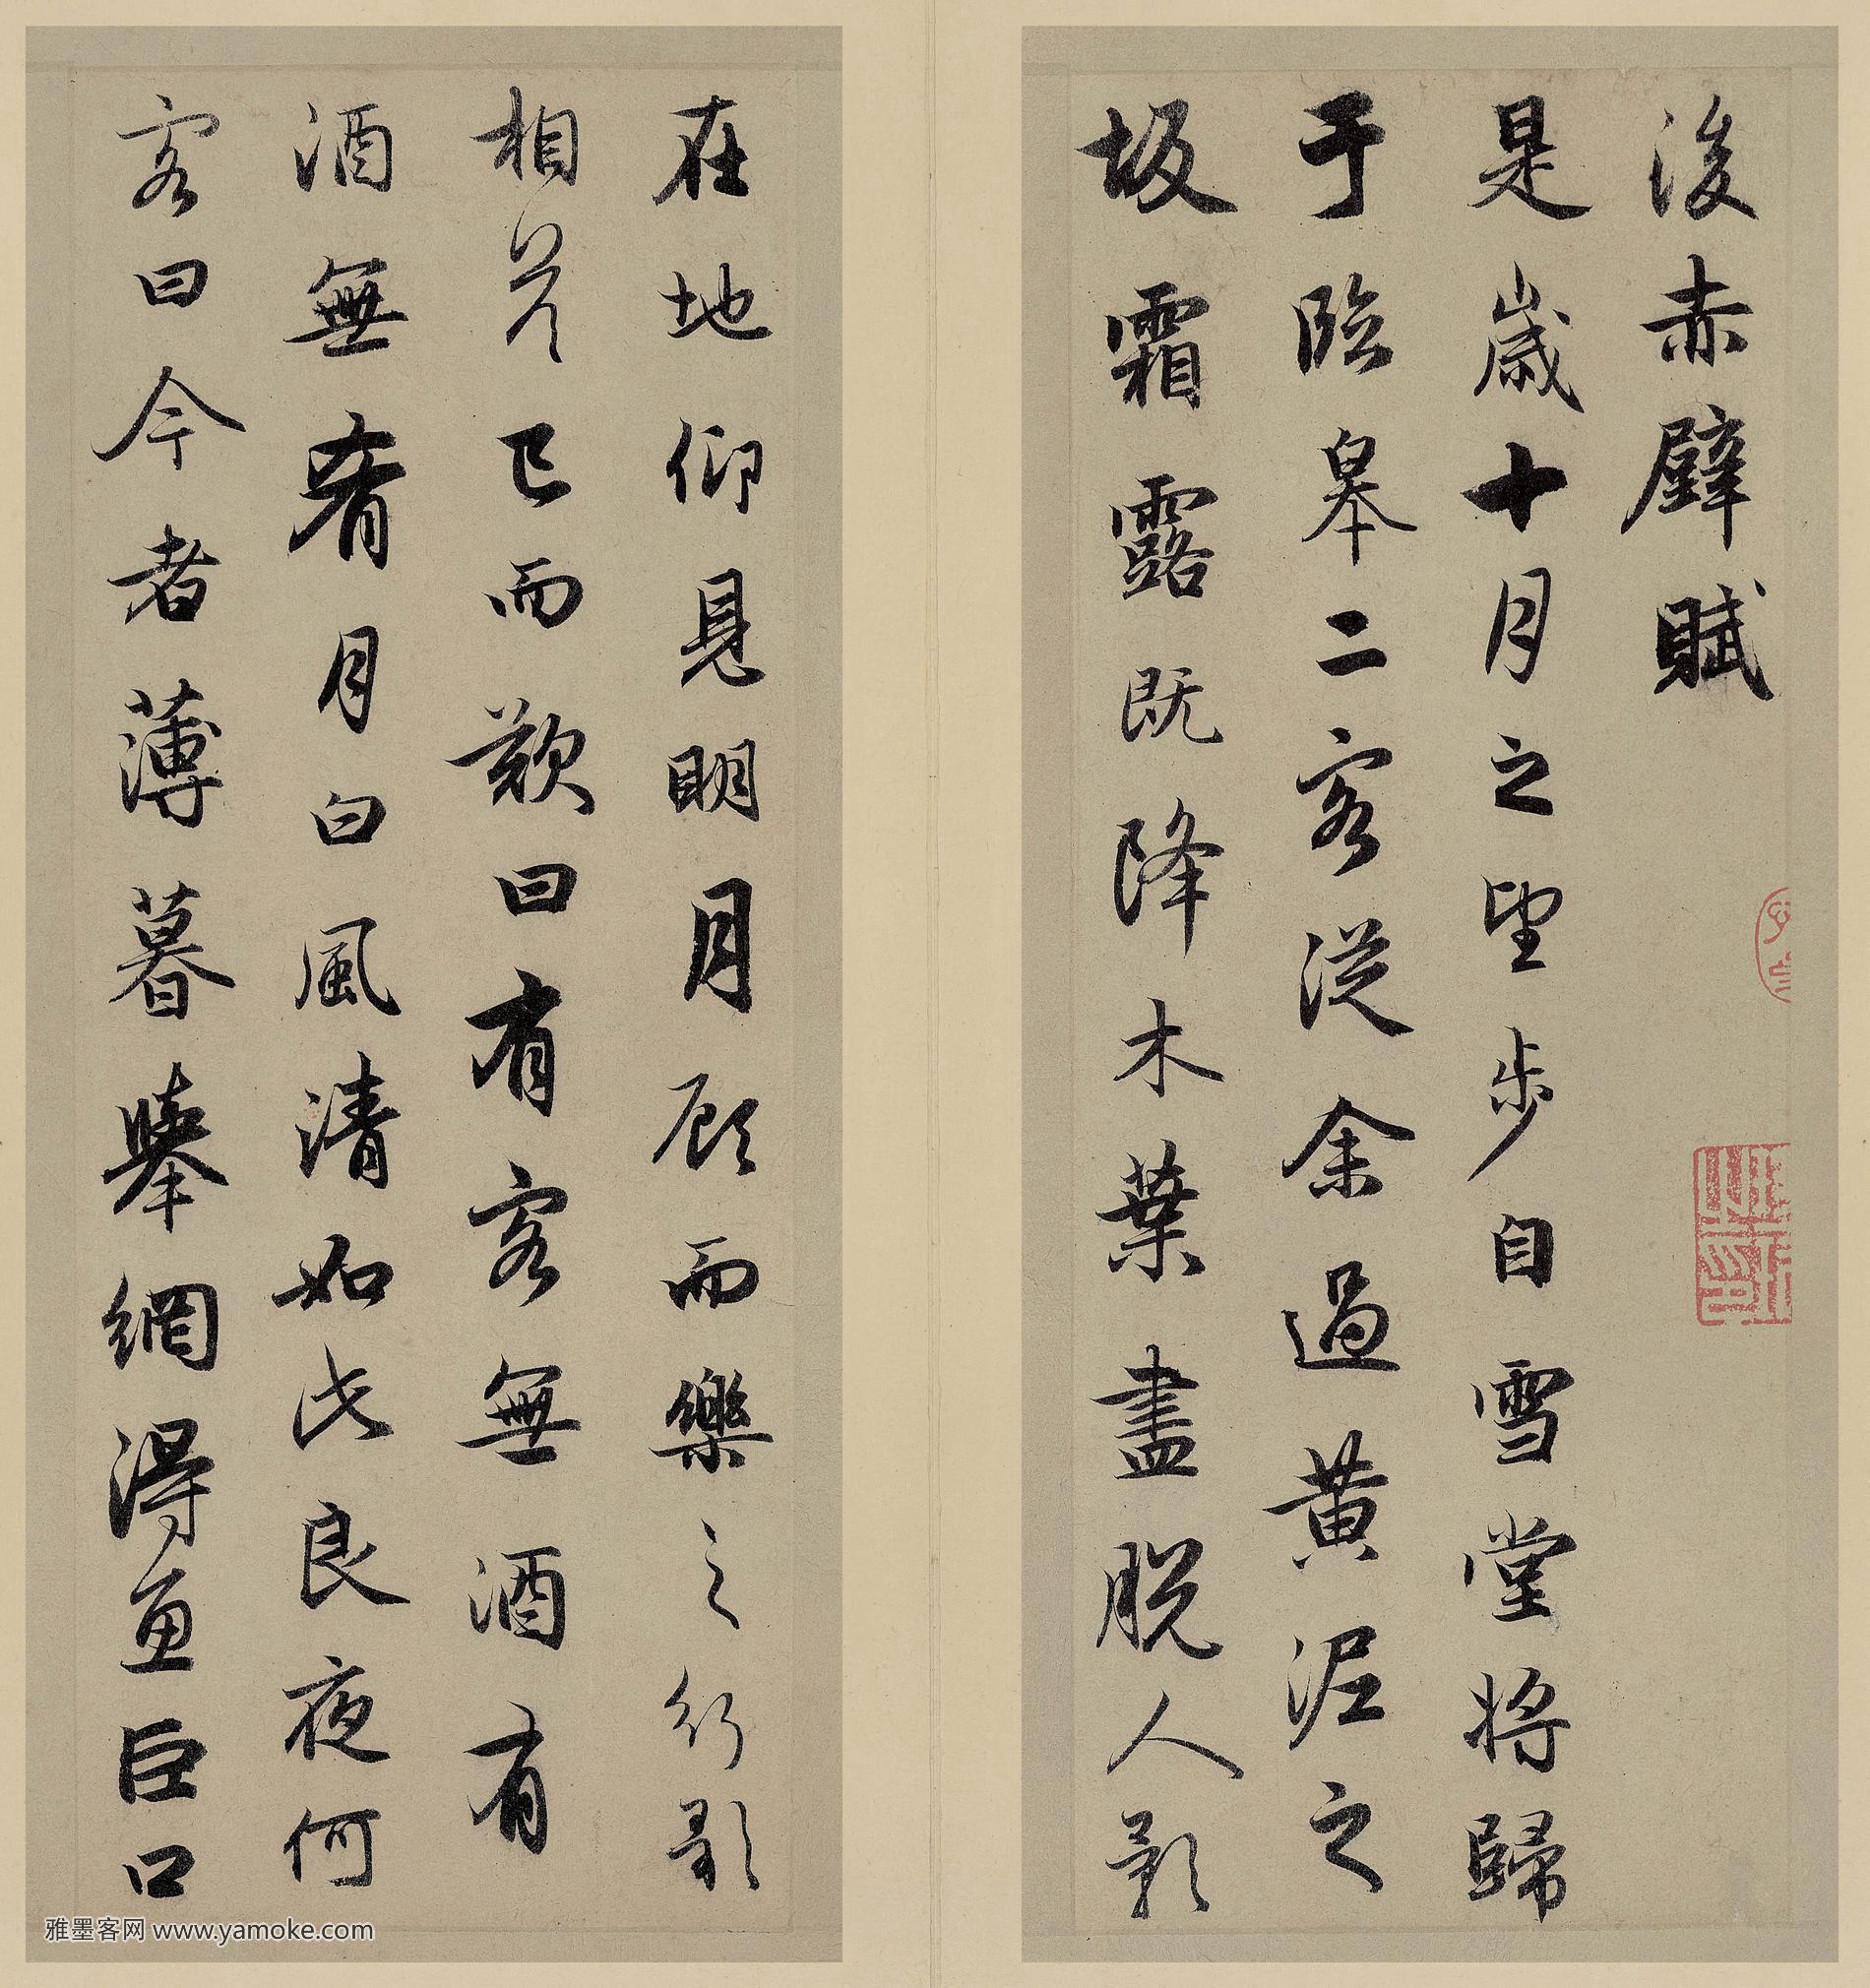 後赤壁賦
是歲十月之望步自雪堂將歸
于臨皋二客從余過黃泥之
坂霜露既降木葉盡脫人影
在地仰見明月顧而樂之行歌
相答已而歎曰有客無酒有
酒無肴月白風清如此良夜何
客曰今者薄暮舉網得魚巨口
雅墨客网 www.yamoke.com